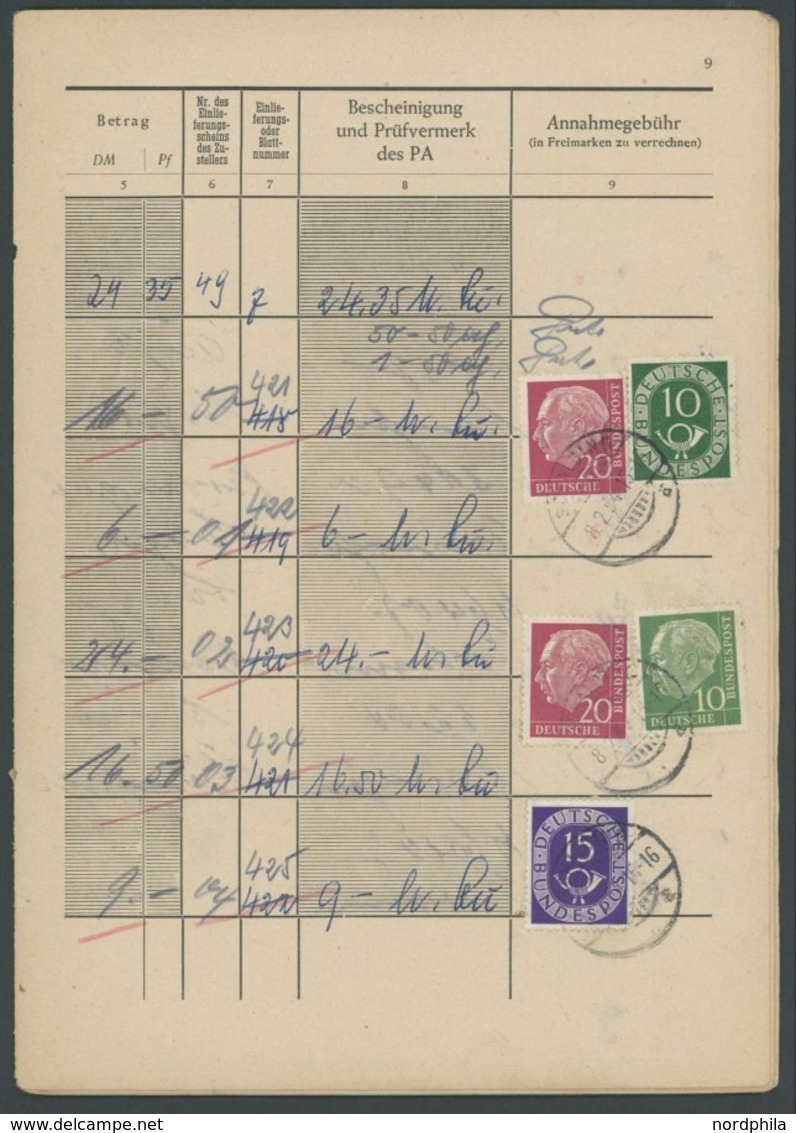 9
Betrag
DM Pf
Nr. des
Einlie-
ferungs-
scheins
des Zu-
stellers
Einlie-
ferungs-
oder
Blatt-
nummer
Bescheinigung
und Prüfvermerk
des PA
Annahmegebühr
(in Freimarken zu verrechnen)
5 6 7 8 9
24 35 49 7 24,35
50 - 50
1 - 50
421
16.- 50 418 16 -
422
6.- 01 419 6 -
423
24.- 02 420 24.-
424
16.50 03 421 16.50
425
9.- 04 422 9 -
20
DEUTSCHE
BUNDESPOST
DEUTSCHE
10
BUNDESPOST
20
DEUTSCHE
BUNDESPOST
10
DEUTSCHE
BUNDESPOST
DEUTSCHE
15
BUNDESPOST
-16
nordphila